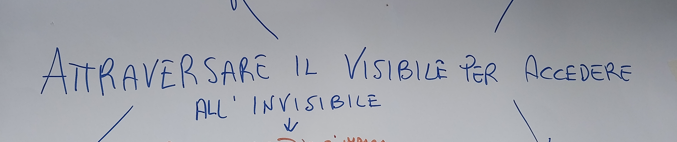 ATTRAVERSARE IL VISIBILE PER ACCEDERE
ALL' INVISIBILE